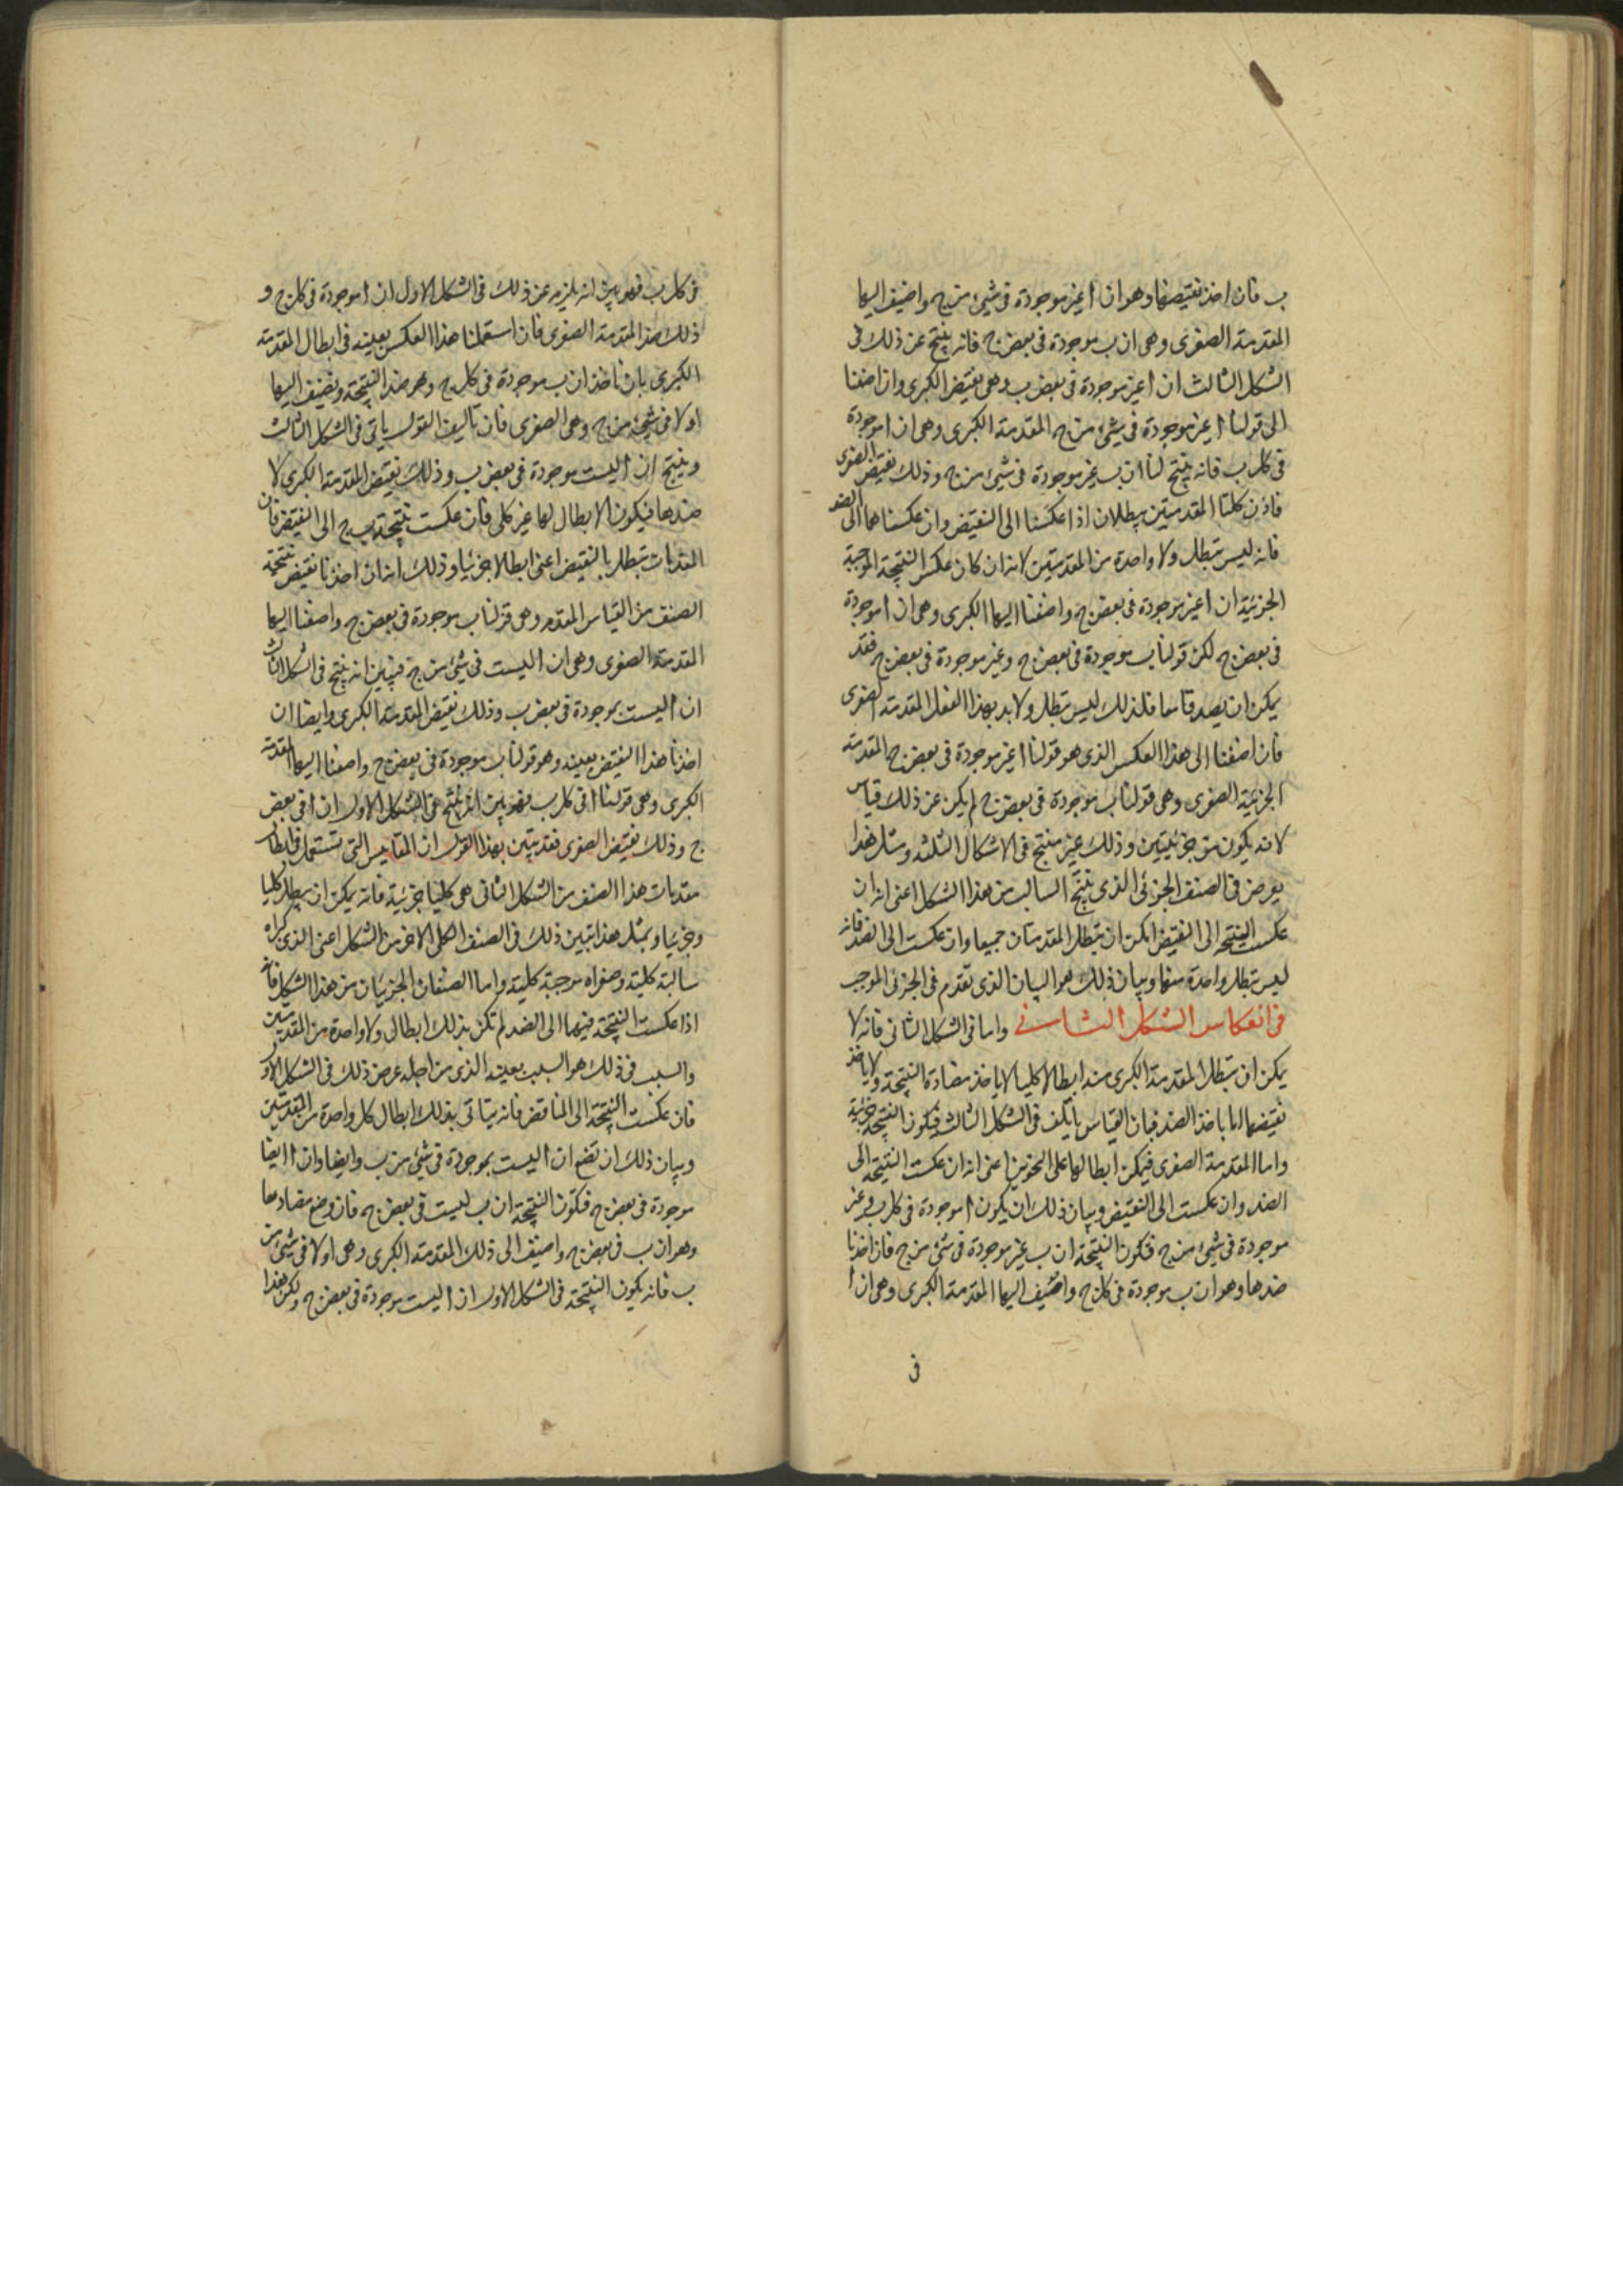 ب فان اخذ نقيضها وهو ان ا غير موجودة فى شئ من ج واضيف اليها
المقدمة الصغرى وهى ان ب موجودة فى بعض ج فانه ينتج عن ذلك فى
الشكل الثالث ان ا غير موجودة فى بعض ب وهى نقيض الكبرى وان اضفنا
الى قولنا ا غير موجودة فى شئ من ج المقدمة الكبرى وهى ان ا موجودة
فى كل ب فانه ينتج لنا ان ب غير موجودة فى شئ من ج وذلك نقيض الصغرى
فاذن كلتا المقدمتين يبطلان اذا عكسنا الى النقيض وان عكسناهما الى الضد
فانه ليس تبطل ولا واحدة من المقدمتين لانه ان كان عكس النتيجة الموجبة
الجزئية ان ا غير موجودة فى بعض ج واضفنا اليها الكبرى وهى ان ا موجودة
فى بعض ج لكن قولنا ب موجودة فى بعض ج وغير موجودة فى بعض ج فقد
يمكن ان يصدقا معا فلذلك ليس تبطل ولا بد بهذا الفعل المقدمة الصغرى
فان اضفنا الى هذا العكس الذى هو قولنا ا غير موجودة فى بعض ج المقدمة
الجزئية الصغرى وهى قولنا ب موجودة فى بعض ج لم يكن عن ذلك قياس
لانه يكون من جزئيتين وذلك غير منتج فى الاشكال الثلثه ومثل هذا
يعرض فى الصنف الجزئى الذى ينتج السالب من هذا الشكل اعنى انه ان
عكست النتيجة الى النقيض امكن ان تبطل المقدمتان جميعا وان عكست الى الضد فانه
ليس تبطل واحدة منهما وبيان ذلك هو البيان الذى تقدم فى الجزئى الموجب
فى انعكاس الشكل الثانى واما فى الشكل الثانى فانه لا
يمكن ان تبطل المقدمة الكبرى منه ابطالا كليا لا ياخذ مضادة النتيجة ولا ياخذ
نقيضها اما باخذ الضد فبان القياس ياتلف فى الشكل الثالث فيكون النتيجة جزئية
واما المقدمة الصغرى فيمكن ابطالها على النحوين اعنى انه ان عكست النتيجة الى
الضد وان عكست الى النقيض وبيان ذلك ان يكون ا موجودة فى كل ب وغير
موجودة فى شئ من ج فيكون النتيجة ان ب غير موجودة فى شئ من ج فان اخذنا
ضدها وهو ان ب موجودة فى كل ج واضيف اليها المقدمة الكبرى وهى ان ا
فى
فى كل ب فقد تبين انه يلزم عن ذلك فى الشكل الاول ان ا موجودة فى كل ج و
ذلك ضد المقدمة الصغرى فان استعملنا هذا العكس بعينه فى ابطال المقدمة
الكبرى بان ناخذ ان ب موجودة فى كل ج وهو ضد النتيجة ونضيف اليها
ا ولا فى شئ من ج وهى الصغرى فان تاليف القول ياتى فى الشكل الثالث
وينتج ان ا ليست موجودة فى بعض ب وذلك نقيض المقدمة الكبرى لا
ضدها فيكون الابطال لها غير كلى فان عكست نتيجة ب ج الى النقيض فان
المقدمات تبطل بالنقيض اعنى ابطالا جزئيا وذلك انه ان اخذنا نقيض نتيجة
الصنف من القياس المتقدم وهى قولنا ب موجودة فى بعض ج واضفنا اليها
المقدمة الصغرى وهى ان ا ليست فى شئ من ج فبين انه ينتج فى الشكل الثالث
ان ا ليست بموجودة فى بعض ب وذلك نقيض المقدمة الكبرى وايضا ان
اخذنا هذا النقيض بعينه وهو قولنا ب موجودة فى بعض ج واضفنا اليها المقدمة
الكبرى وهى قولنا ا فى كل ب فقد تبين انه ينتج فى الشكل الاول ان ا فى بعض
ج وذلك نقيض الصغرى فقد تبين بهذا القول ان المقاييس التى تستعمل فى ابطال
مقدمات هذا الصنف من الشكل الثانى هى كليها جزئية فانه يمكن ان يبطل كليا
وجزئيا وبمثل هذا تبين ذلك فى الصنف الكلى الاخر من الشكل اعنى الذى كبراه
سالبة كلية وصغراه موجبة كلية واما الصنفان الجزئيان من هذا الشكل فانه
اذا عكست النتيجة فيهما الى الضد لم تكن بذلك ابطال ولا واحدة من المقدمتين
والسبب فى ذلك هو السبب بعينه الذى من اجله عرض ذلك فى الشكل الاول
فان عكست النتيجة الى المناقض فانه يتاتى بذلك ابطال كل واحدة من المقدمتين
وبيان ذلك ان نضع ان ا ليست بموجودة فى شئ من ب وايضا وان ا ايضا
موجودة فى بعض ج فتكون النتيجة ان ب ليست فى بعض ج فان وضع مضادها
وهو ان ب فى بعض ج واضيف الى ذلك المقدمة الكبرى وهى ا ولا فى شئ من
ب فانه يكون النتيجة فى الشكل الاول ان ا ليست موجودة فى بعض ج ولكن هذا